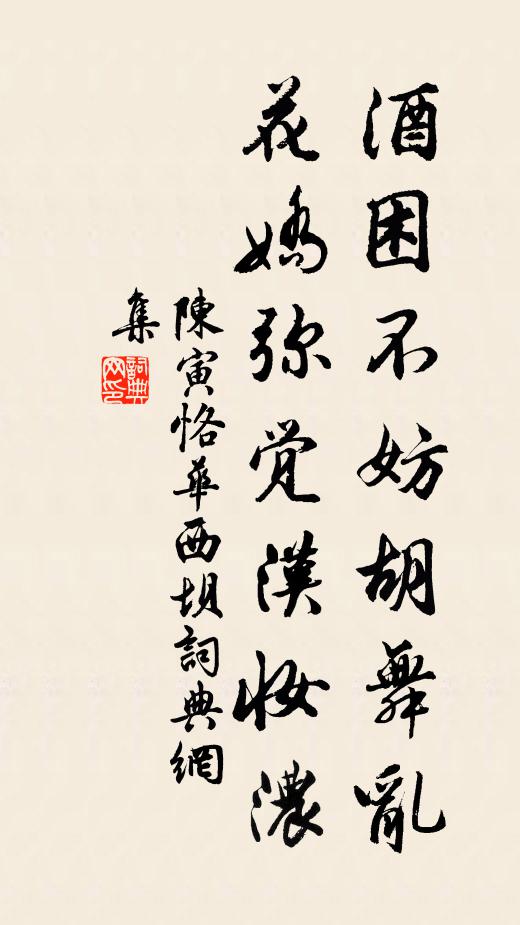 酒困不妨胡舞亂
花嬌弥觉漢妆濃
陳寅恪華西垻詞典網
集
詞典网印